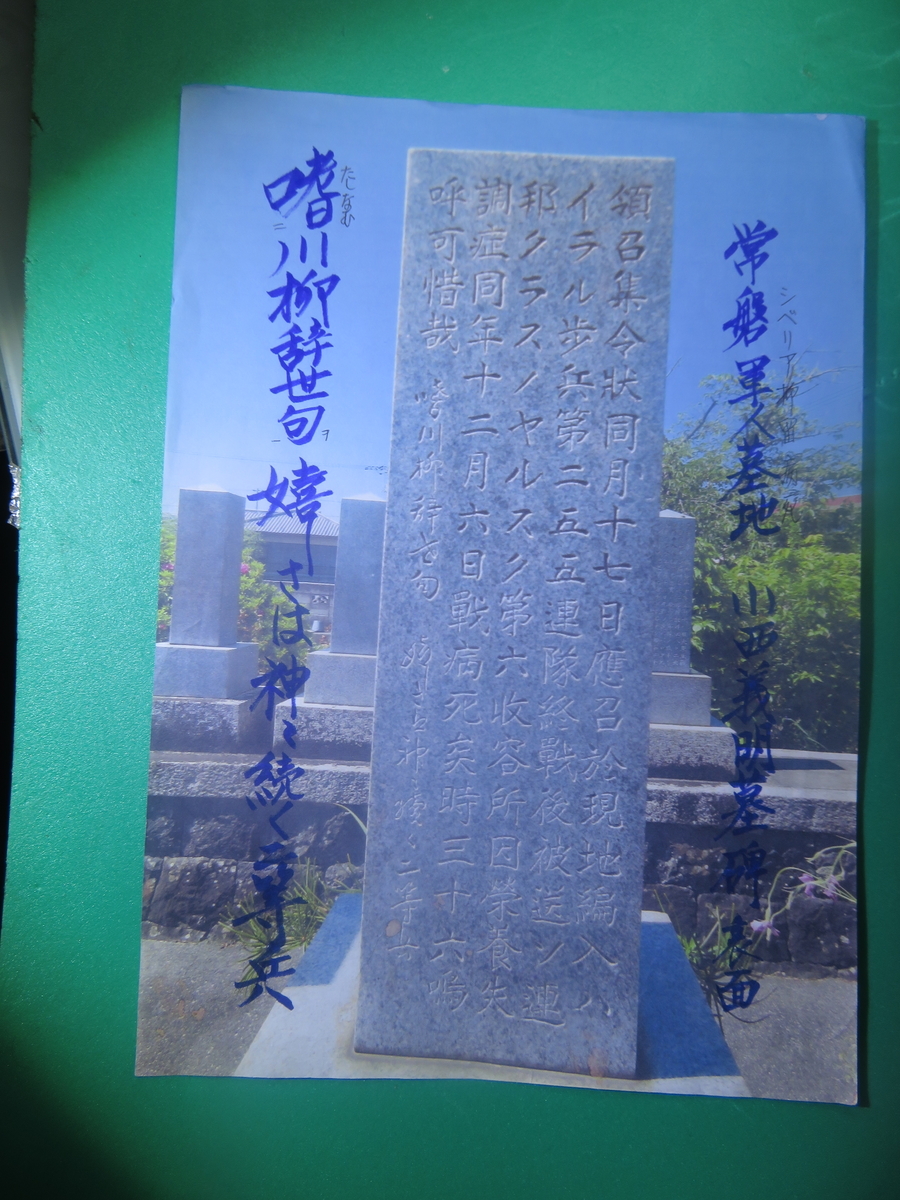 常磐軍人墓地 西義明墓碑 面
シベリア
領召集令狀同月十七日應召於現地編入ハ
イラル歩兵第二五五連隊終戰後被送ソ連
邦クラスノヤルスク第六收容所因榮養失
調症同年十二月六日戰病死矣時三十六嗚
呼可惜哉 嗜川柳辞世句 嬉さは神〻續く二等兵
嗜川柳辞世句 嬉さは神〻続く二等兵
たしなむ